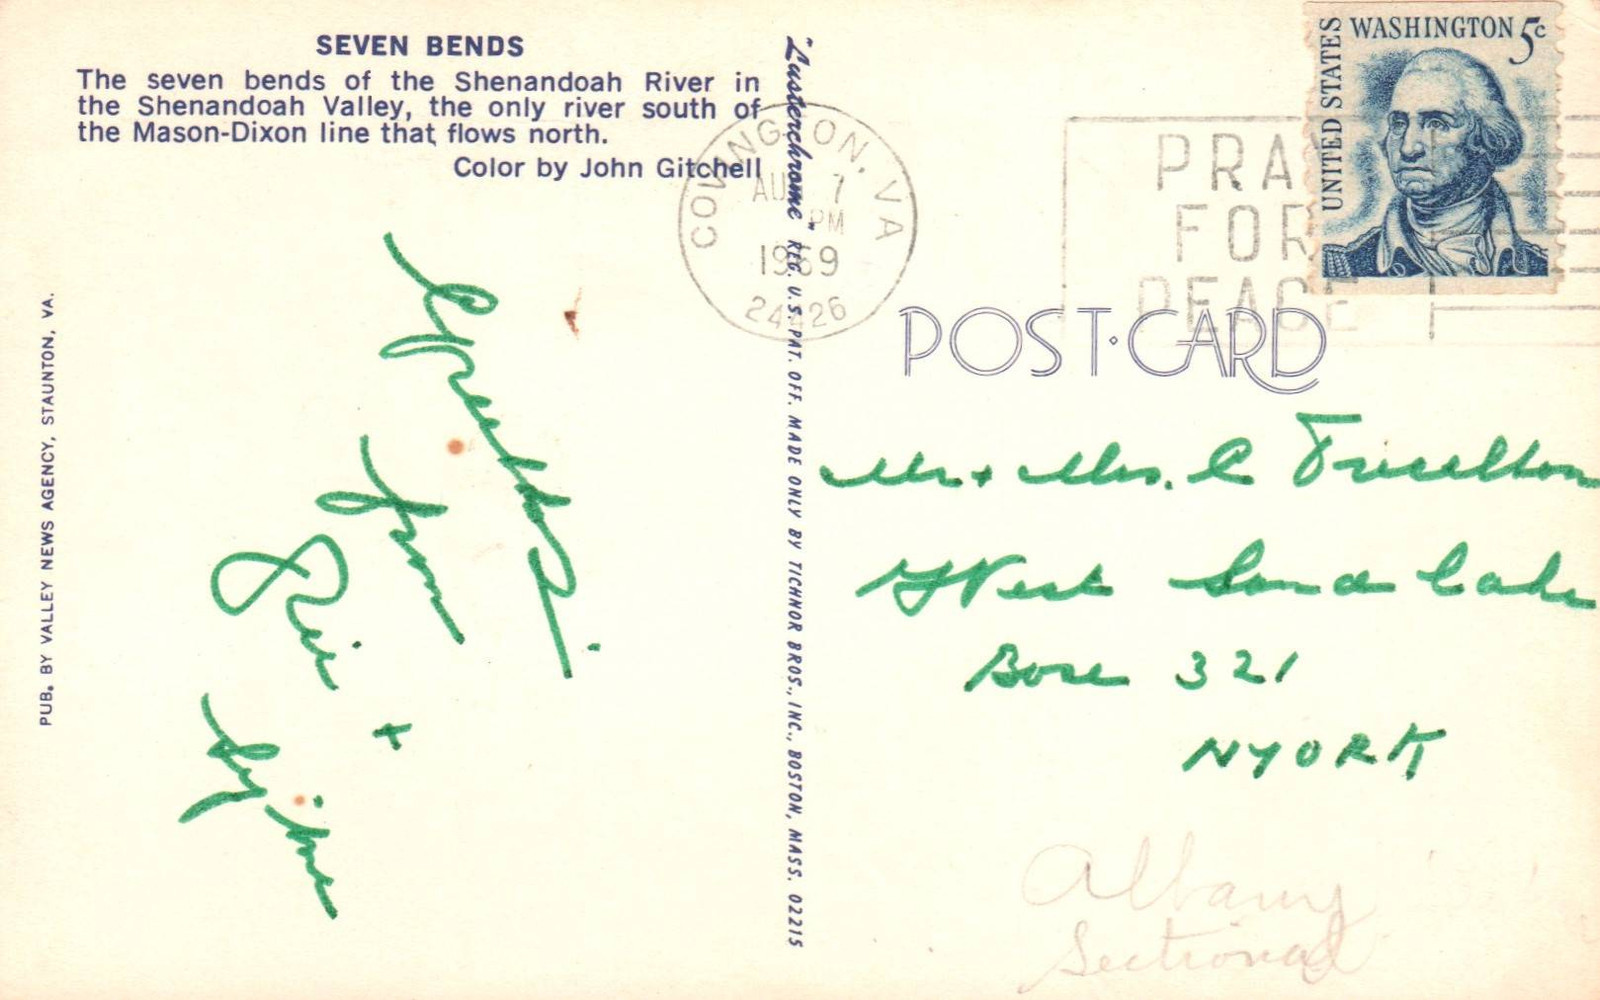 SEVEN BENDS
The seven bends of the Shenandoah River in
the Shenandoah Valley, the only river south of
the Mason-Dixon line that flows north.
Color by John Gitchell
PUB. BY VALLEY NEWS AGENCY, STAUNTON, VA.
from
+
"Lusterchrome" REG. U.S. PAT. OFF. MADE ONLY BY TICHNOR BROS., INC., BOSTON, MASS. 02215
COVINGTON, VA
AUG 7
PM
1969
24426
PRAY
FOR
PEACE
UNITED STATES
WASHINGTON 5c
POST CARD
Mr + Mrs. C
West Sand Lake
Box 321
NYORK
Albany
Sectional